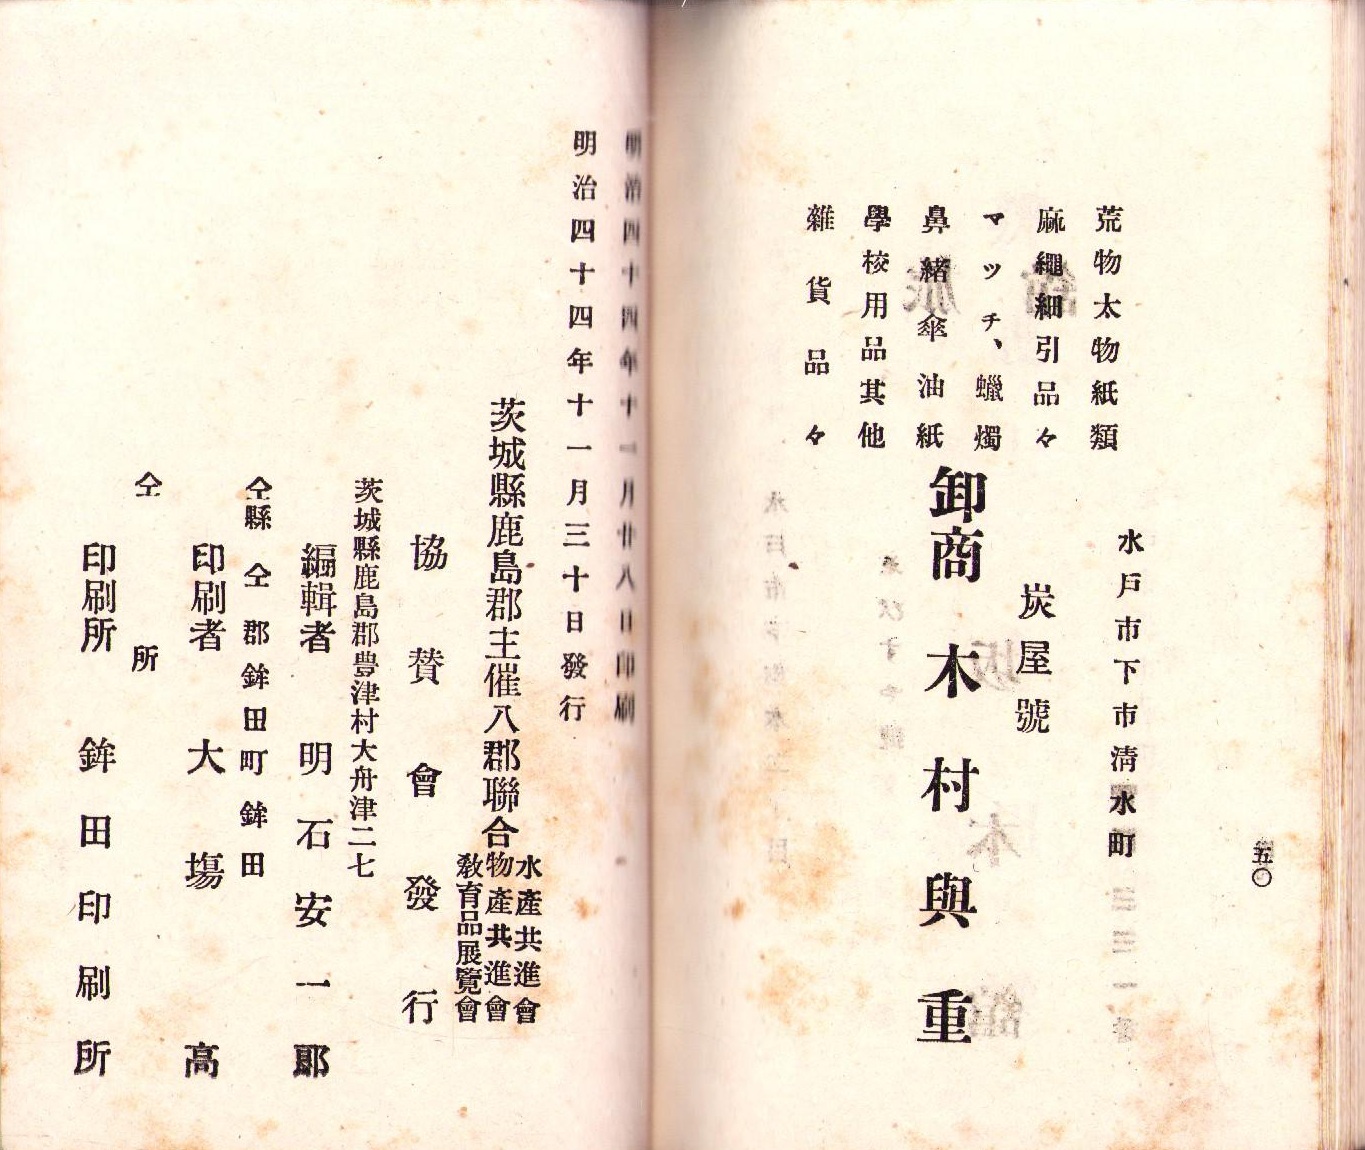 五〇
水戸市下市清水町
荒物太物紙類
麻繩細引品々
マッチ、蠟燭
鼻緒傘油紙
學校用品其他
雜貨品々
炭屋號
卸商 木村與重
明治四十四年十一月廿八日印刷
明治四十四年十一月三十日發行
茨城縣鹿島郡主催八郡聯合
水產共進會
物產共進會
敎育品展覽會
協贊會發行
茨城縣鹿島郡豊津村大舟津二七
編輯者 明石安一郞
仝縣仝郡鉾田町鉾田
印刷者 大塲高
仝所
印刷所 鉾田印刷所